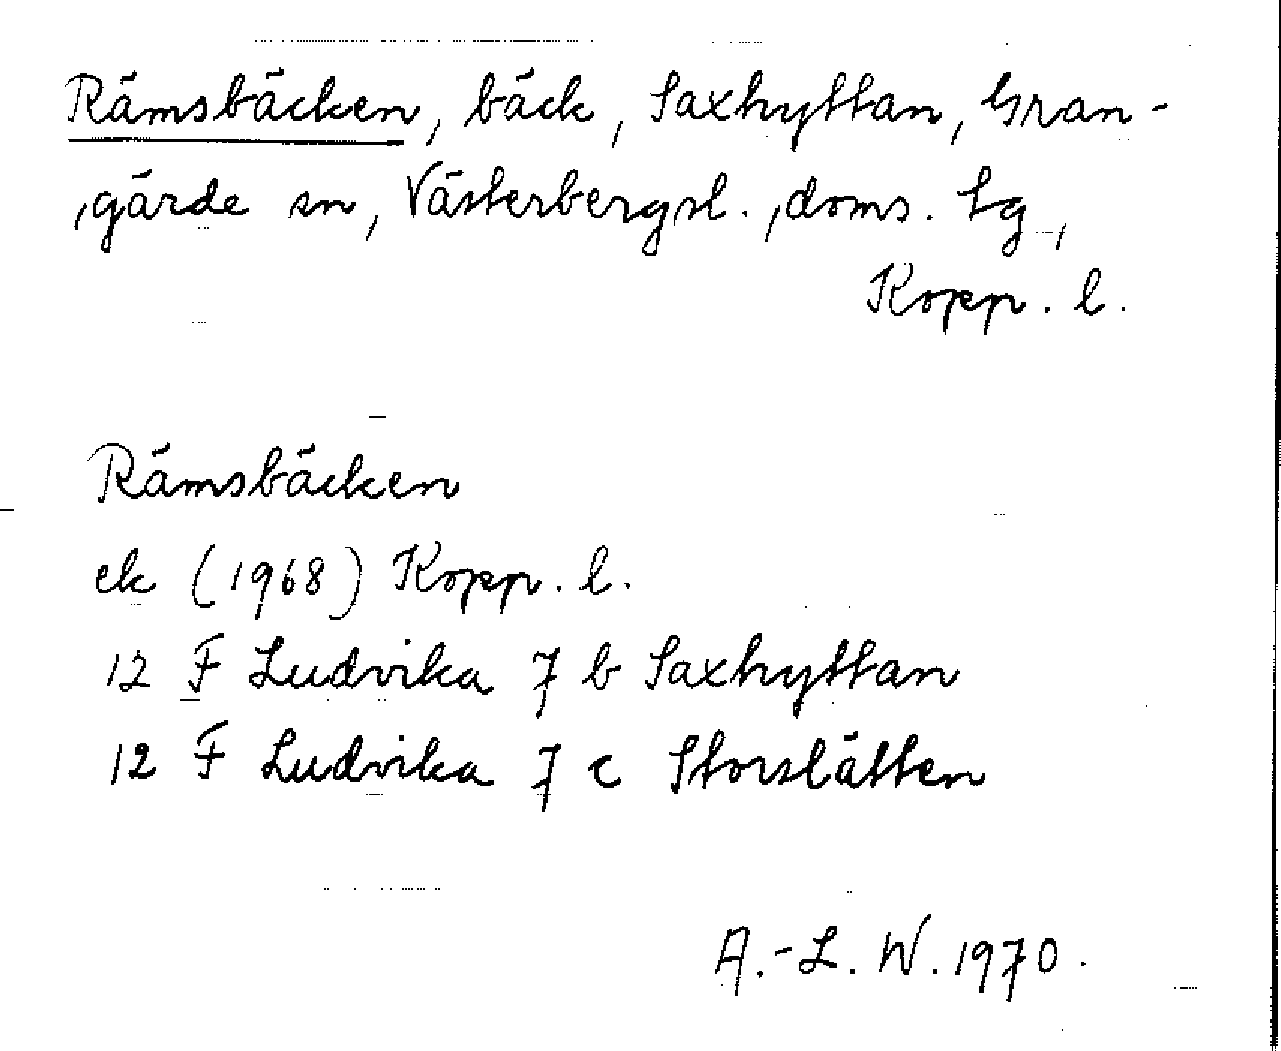 Rämsbäcken, bäck, Saxhyttan, Gran-
gärde sn, Västerbergsl., doms. tg,
Kopp. l.
Rämsbäcken
ek (1968) Kopp. l.
12 F Ludvika 7 b Saxhyttan
12 F Ludvika 7 c Storslätten
A.-L. W. 1970.